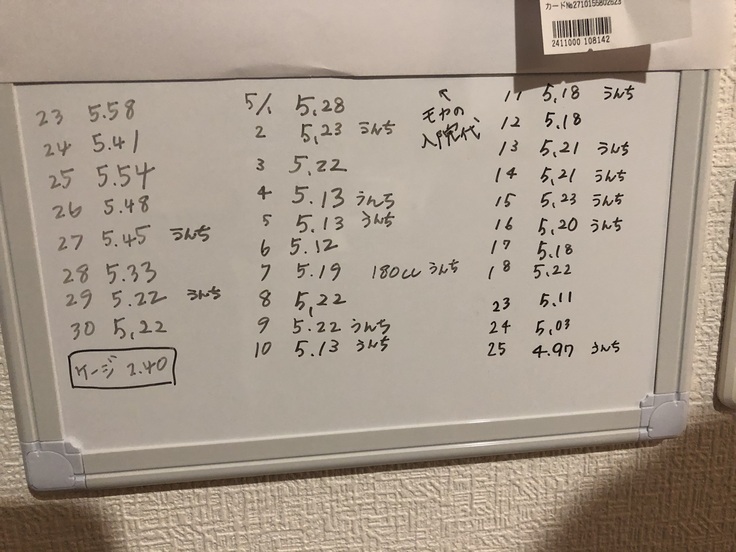 カードNo2710156802623
2411000 108142
23 5.58
24 5.41
25 5.54
26 5.48
27 5.45 うんち
28 5.33
29 5.22 うんち
30 5,22
ケージ 2.40
5/1 5,28
2 5,23 うんち
3 5,22
4 5.13 うんち
5 5.13 うんち
6 5.12
7 5.19 180cc うんち
8 5,22
9 5.22 うんち
10 5.13 うんち
↖
モカの
入院代
11 5,18 うんち
12 5.18
13 5,21 うんち
14 5,21 うんち
15 5,23 うんち
16 5,20 うんち
17 5.18
18 5.22
23 5.11
24 5,03
25 4.97 うんち